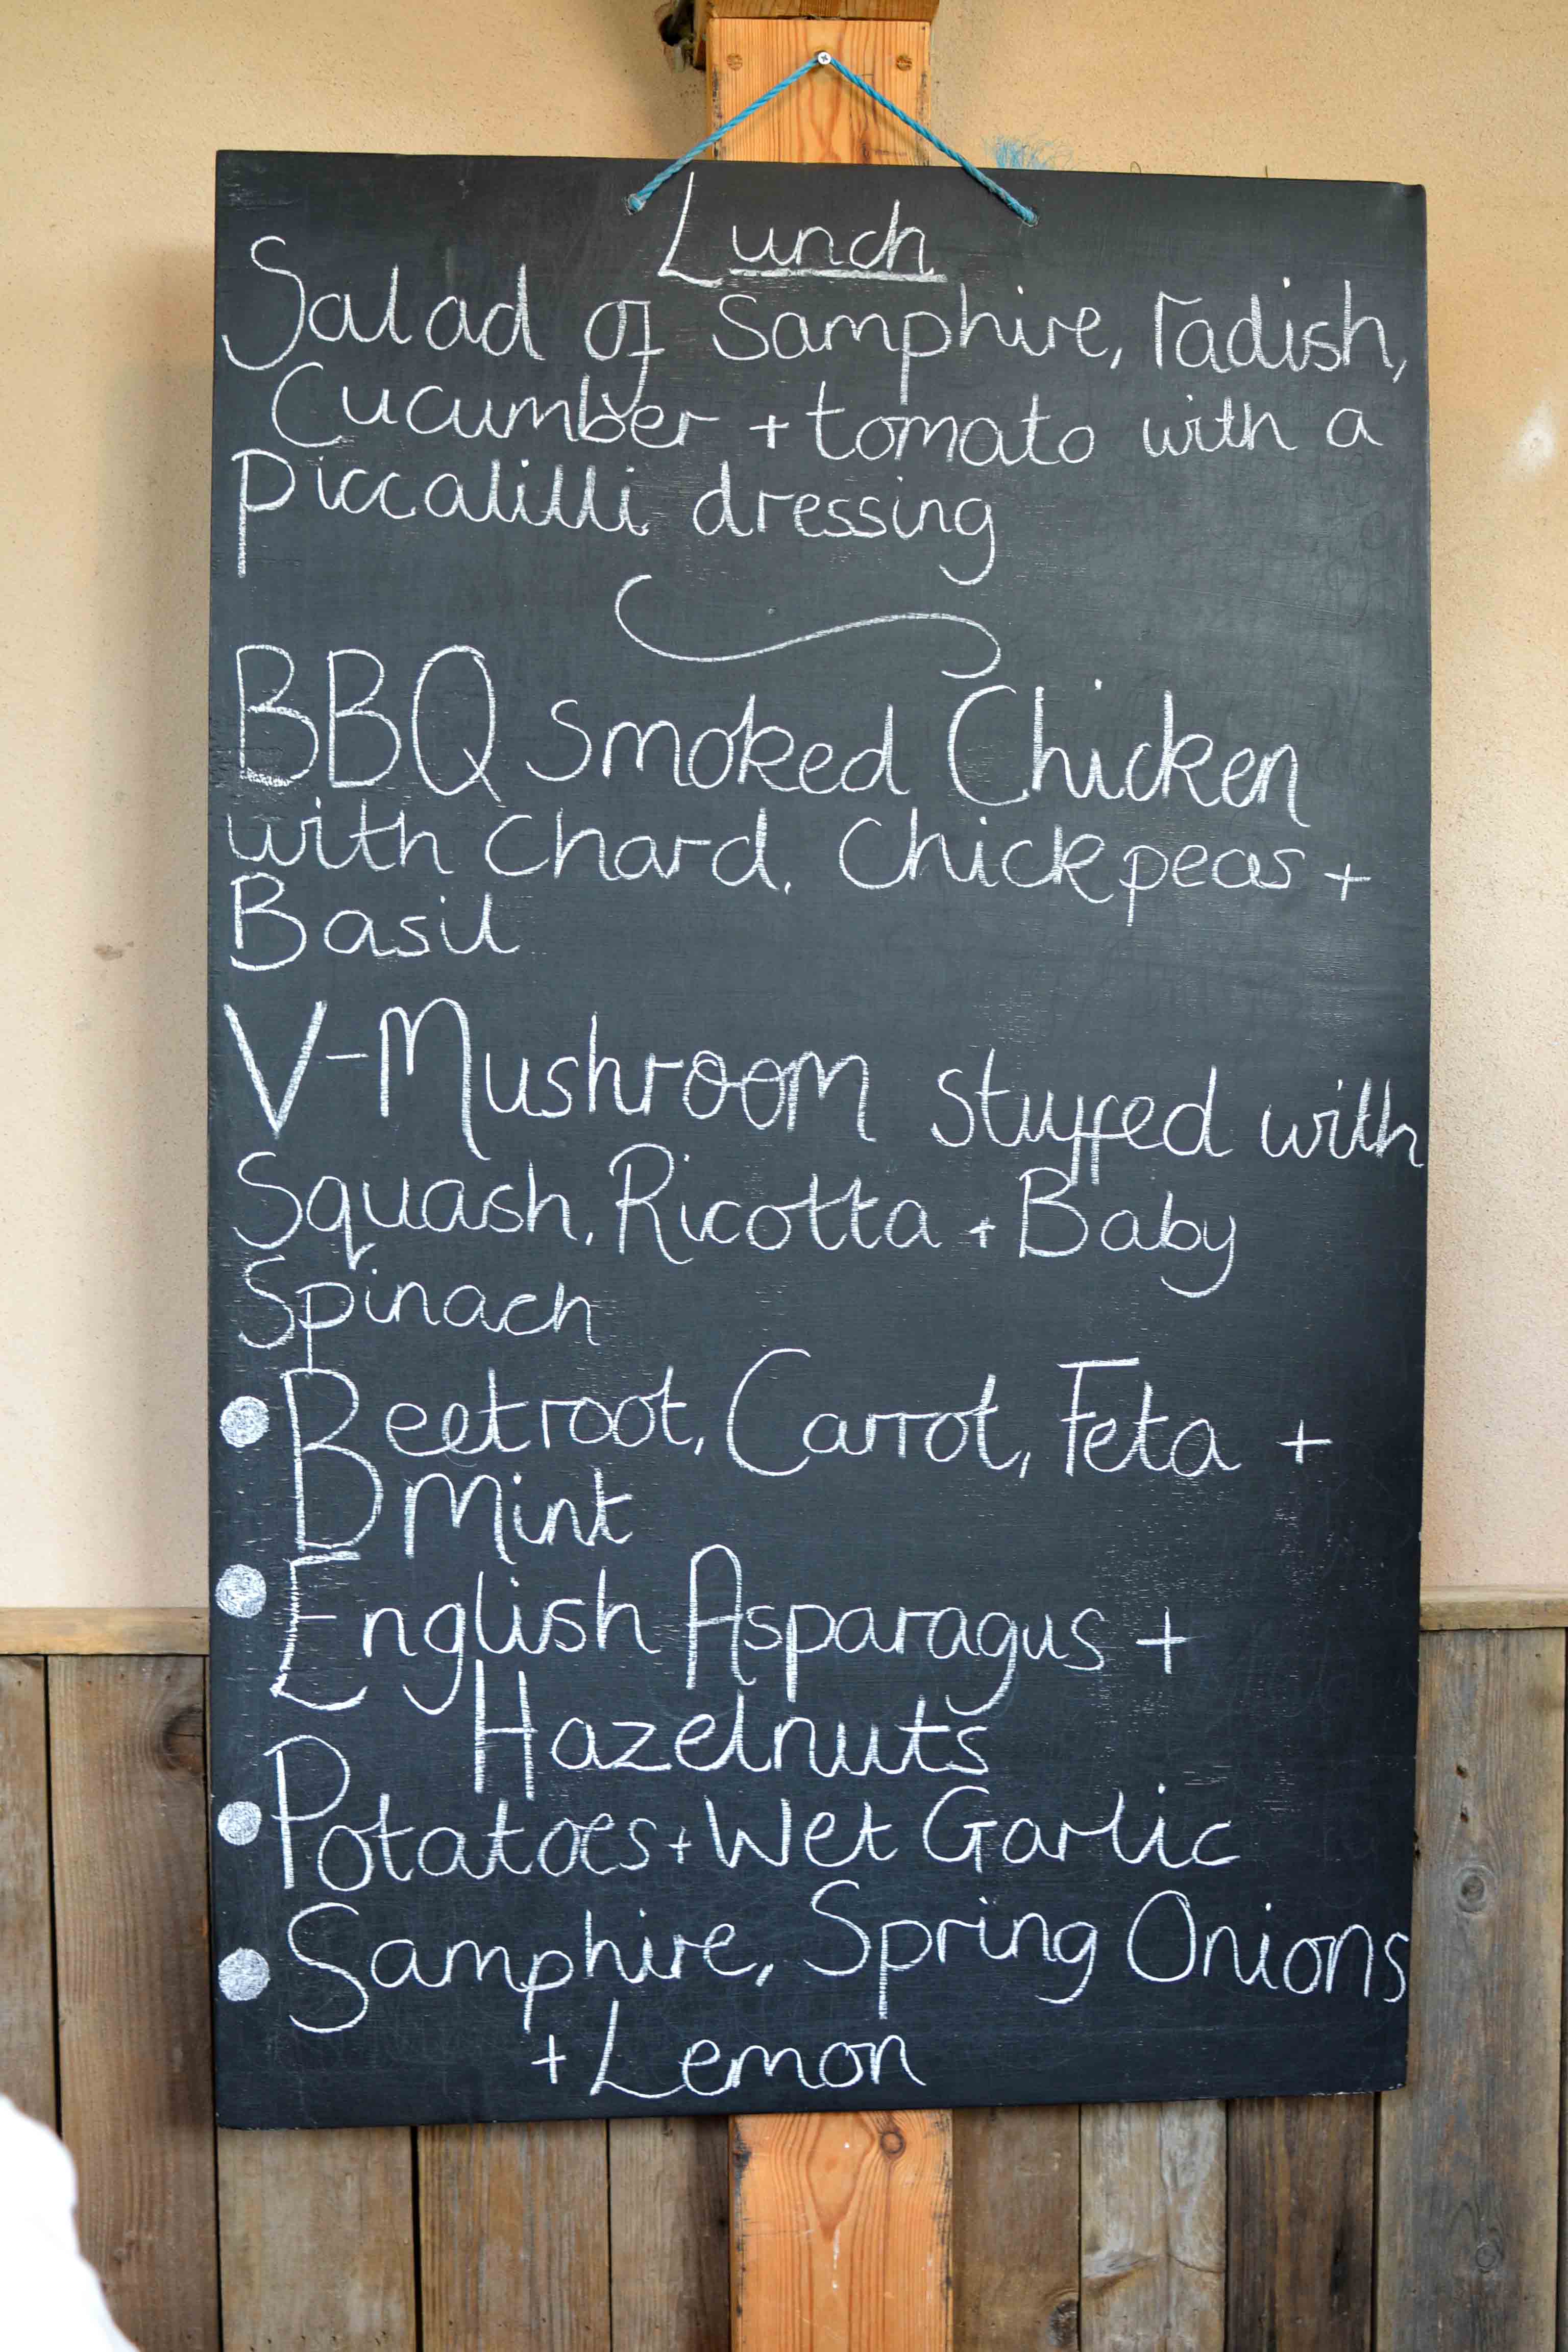 Lunch
Salad of Samphire, radish,
Cucumber + tomato with a
Piccalilli dressing
BBQ Smoked Chicken
with Chard, Chickpeas +
Basil
V-Mushroom stuffed with
Squash, Ricotta + Baby
Spinach
Beetroot, Carrot, Feta +
Mint
English Asparagus +
Hazelnuts
Potatoes + Wet Garlic
Samphire, Spring Onions
+ Lemon